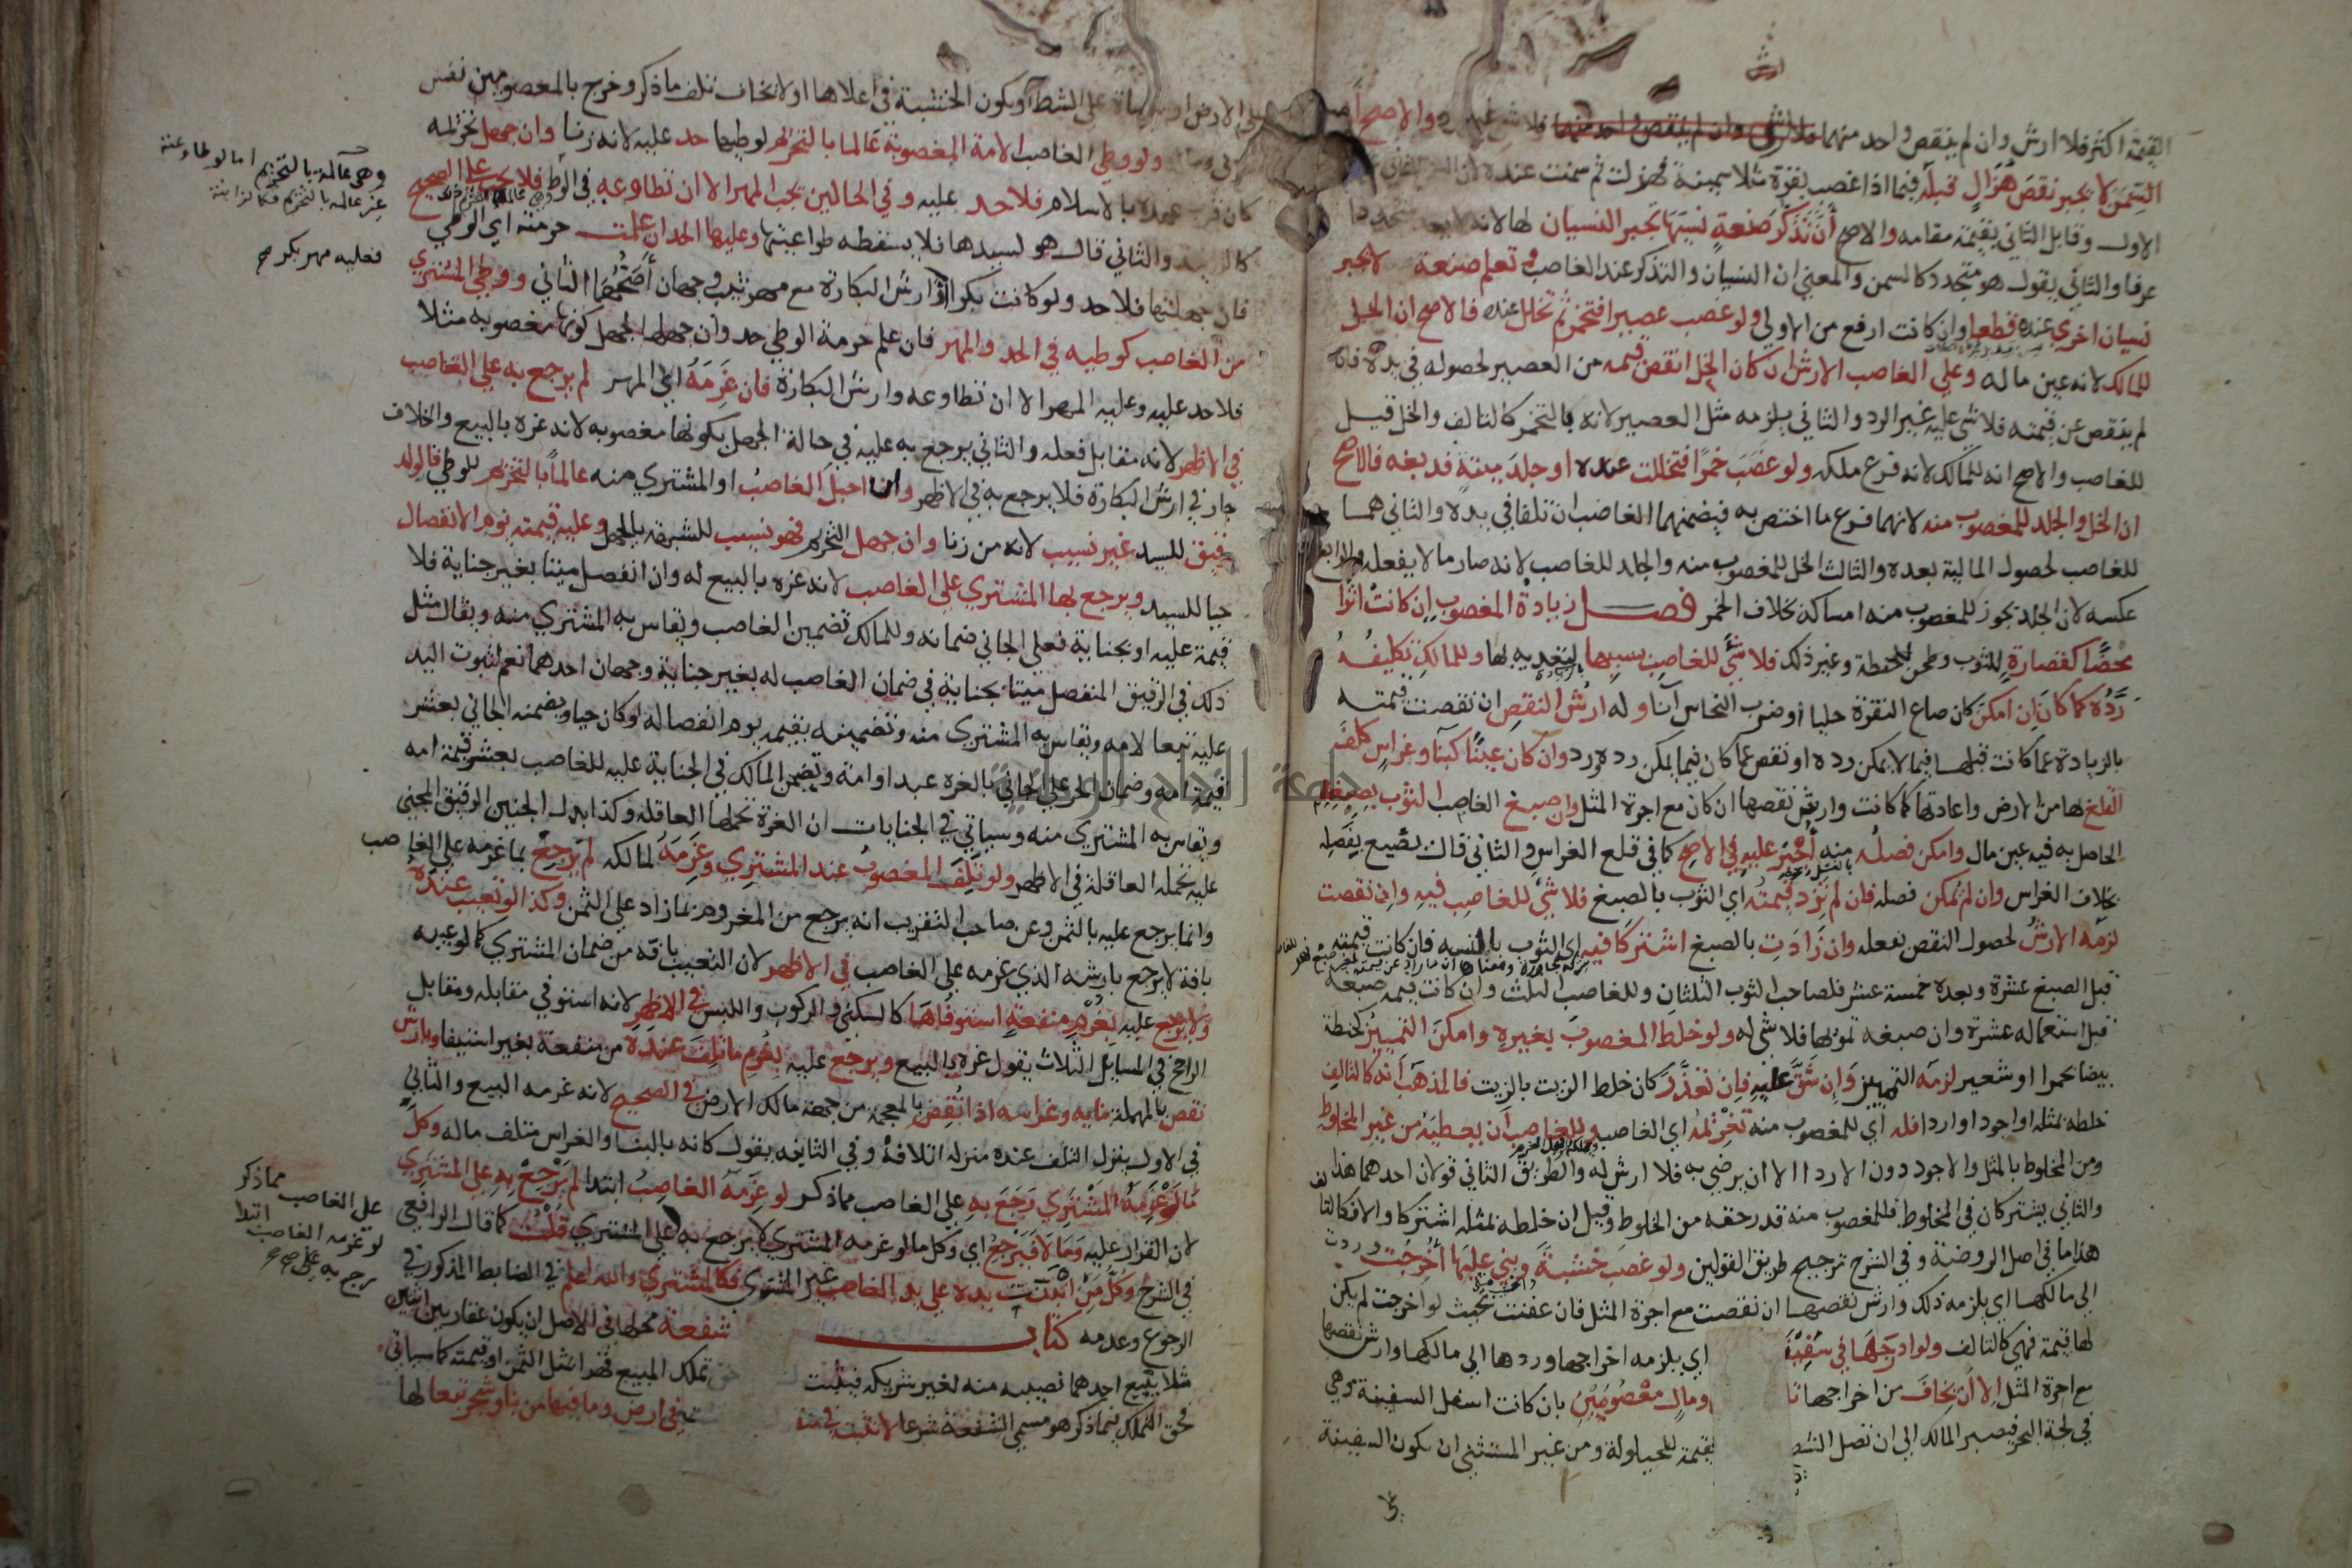 ارش
القيمة اكثر فلا ارش وان لم ينقص واحد منهما فلا شي غير الرد والاصح ان
السمن لا يجبر نقص هزال قبله فيما اذا غصب بقرة مثلا سمينة فهزلت ثم سمنت عنده لان السمن الثاني غير
الاول وقابل الثاني يقيمه مقامه والاصح أن تذكر صنعة نسيها يجبر النسيان لها لانه لا يعد متجددا
عرفا والثاني يقول هو متجدد كالسمن والمعني ان النسيان والتذكر عند الغاصب وتعلم صنعة لا يجبر
نسيان اخري عنده قطعا وان كانت ارفع من الاولي ولو غصب عصيرا فتخمر ثم تخلل عنده فالاصح ان الخل
للمالك لانه عين ماله وعلي الغاصب الارش ان كان الخل انقص قيمه من العصير لحصوله في يده فان
لم ينقص عن قيمته فلا شي عليه غير الرد والثاني يلزمه مثل العصير لانه بالتخمر كالتالف والخل قيل
للغاصب والاصح انه للمالك لانه فرع ملكه ولو غصب خمرا فتخللت عنده او جلد ميتة فدبغه فالاصح
ان الخل والجلد للمغصوب منه لانهما فرع ما اختص به فيضمنهما الغاصب ان تلفا في يده والثاني هما
للغاصب لحصول المالية بعده والثالث الخل للمغصوب منه والجلد للغاصب لانه صار مالا بفعله والرابع
عكسه لان الجلد يجوز للمغصوب منه امساكه بخلاف الخمر فصل زيادة المغصوب ان كانت اثرا
محضا كقصارة للثوب وطحن للحنطة وغير ذلك فلا شي للغاصب بسببها لتعديه بها وللمالك تكليفه
رده كما كان ان امكن كان صاغ النقرة حليا أو ضرب النحاس آنا وله ارش النقص ان نقصت قيمته
بالزيادة عما كانت قبلها فيما لا يمكن رده او نقص عما كان فيما يمكن رده ورد وان كان عينا كبناء وغراس كلف
القلع لها من الارض واعادتها كما كانت وارش نقصها ان كان مع اجرة المثل وان صبغ الغاصب الثوب بصبغه
الحاصل به فيه عين مال وامكن فصله منه أجبر عليه في الاصح كما في قلع الغراس والثاني قال يضيع بفصله
بخلاف الغراس وان لم يمكن فصله فان لم تزد قيمته اي الثوب بالصبغ فلا شي للغاصب فيه وان نقصت
لزمه الارش لحصول النقص بفعله وان زادت بالصبغ اشتركا فيه اي الثوب بالنسبه فان كانت قيمته
قبل الصبغ عشرة وبعده خمسة عشر فلصاحب الثوب الثلثان وللغاصب الثلث وان كانت قيمة صبغه
قبل استعماله عشرة وان صبغه تمويها فلا شي له ولو خلط المغصوب بغيره وامكن التمييز كحنطة
بيضا بحمرا او شعير لزمه التمييز وان شق عليه فان تعذر كان خلط الزيت بالزيت فالمذهب انه كالتالف
خلطه بمثله او اجود او اردا فله اي للمغصوب منه تغريمه اي الغاصب وللغاصب أن يعطيه من غير المخلوط
ومن المخلوط بالمثل والاجود دون الاردا الا ان يرضي به فلا ارش له والطريق الثاني قولان احدهما هذا
والثاني يشتركان في المخلوط فللمغصوب منه قدر حقه من الخلوط وقيل ان خلطه بمثله اشتركا والا فكالتا
هذا ما في اصل الروضة وفي الشرح ترجيح طريق القولين ولو غصب خشبة وبني عليها أخرجت وردت
الي مالكها اي يلزمه ذلك وارش نقصها ان نقصت مع اجرة المثل فان عفنت بحيث لو اخرجت لم يكن
لها قيمة فهي كالتالف ولو ادرجها في سفينة اي يلزمه اخراجها وردها الي مالكها وارش نقصها
مع اجرة المثل الا أن يخاف من اخراجها تلف ومال معصومين بان كانت اسفل السفينة وهي
في لجة البحر فيصبر المالك الي ان تصل الشط بقيمة للحيلولة ومن غير المستثني ان يكون السفينة
علي الارض او مرساة علي الشط أو يكون الخشبة في اعلاها او لا يخاف تلف ماذكر وخرج بالمعصومين نفس
ولو وطي الغاصب الامة المغصوبة عالما بالتحريم لوطيها حد عليه لانه زنا وان جهل تحريمه
كان قرب عهده بالاسلام فلا حد عليه وفي الحالين يجب المهر الا ان تطاوعه في الوط فلا يجب علي الصحيح
كالزانية والثاني قال هو لسيدها فلا يسقطه طواعيتها وعليها الحد ان علمت حرمته اي الوطي
فان جهلتها فلا حد ولو كانت بكرا فارش البكارة مع مهر ثيب وجهان أصحهما الثاني ووطي المشتري
من الغاصب كوطيه في الحد والمهر فان علم حرمة الوطي حد وان جهلها لجهل كونها مغصوبه مثلا
فلا حد عليه وعليه المهر الا ان تطاوعه وارش البكارة فان غرمه اي المهر لم يرجع به علي الغاصب
في الاظهر لانه مقابل فعله والثاني يرجع به عليه في حالة الجهل بكونها مغصوبه لانه غره بالبيع والخلاف
جار في ارش البكارة فلا يرجع به في الاظهر وان احبل الغاصب او المشتري منه عالما بالتحريم للوطي فالولد
رقيق للسيد غير نسيب لانه من زنا وان جهل التحريم فهو نسيب للشبهة بالجهل وعليه قيمته يوم الانفصال
حيا للسيد ويرجع بها المشتري علي الغاصب لانه غره بالبيع له وان انفصل ميتا بغير جناية فلا
قيمة عليه او بجناية فعلي الجاني ضمانه وللمالك تضمين الغاصب ويقاس به المشتري منه ويقال مثل
ذلك في الرقيق المنفصل ميتا بجناية في ضمان الغاصب له بغير جناية وجهان احدهما نعم لثبوت اليد
عليه تبعا لامه ويقاس به المشتري منه وتضمينه بقيمته يوم انفصاله لو كان حيا ويضمنه الجاني بعشر
قيمة امه وضمان الحر علي الجاني بالغرة عبد او امة ويضمن المالك في الجناية عليه للغاصب بعشر قيمة امه
ويقاس به المشتري منه وسياتي في الجنايات ان الغرة تحملها العاقلة وكذا بدل الجنين الرقيق المجني
عليه تحمله العاقلة في الاظهر ولو تلف المغصوب عند المشتري وغرمه لمالكه لم يرجع بما غرمه علي الغاصب
وانما يرجع عليه بالثمن وعن صاحب التقريب انه يرجع من المغروم بما زاد علي الثمن وكذا لو تعيب عنده
بافة لا يرجع بارشه الذي غرمه علي الغاصب في الاظهر لان التعييب بافه من ضمان المشتري كما لو عيبه
ولا يرجع عليه بغرم منفعة استوفاها كالسكني والركوب واللبس في الاظهر لانه استوفي مقابله ومقابل
الراجح في المسايل الثلاث يقول غره بالبيع ويرجع عليه بغرم ما تلف عنده من منفعة بغير استيفا وبارش
نقص بالمهملة بنايه وغراسه اذا نقض بالمعجمة من جهة مالك الارض في الصحيح لانه غرمه البيع والثاني
في الاول ينزل التلف عنده منزله اتلافه وفي الثانيه يقول كانه بالبنا والغراس متلف ماله وكل
ما لو غرمه المشتري رجع به علي الغاصب مماذكر لو غرمه الغاصب ابتدا لم يرجع به علي المشتري
لان القرار عليه وما لا فيرجع اي وكل مالو غرمه المشتري لا يرجع به علي المشتري قلت كما قال الرافعي
في الشرح وكل من انبنت يده علي يد الغاصب غير المشتري فكالمشتري والله اعلم في الضابط المذكور في
الرجوع وعدمه كتاب شفعة محلها في الاصل ان يكون عقار بين اثنين
مثلا يبيع احدهما نصيبه منه لغير شريكه فيثبت حق تملك المبيع قهرا بمثل الثمن او قيمته كما سياتي
فحق التملك فيما ذكر هو مسمي الشفعة شرعا لا تثبت في ارض وما فيها من بنا وشجر تبعا لها
وهي عالمة بالتحريم اما لو طاوعته
غير عالمة بالتحريم فكالزانية
فعليه مهر بكر صح
مماذكر
علي الغاصب
لو غرمه الغاصب ابتدا
رجع به علي صح
جامعة النجاح الوطنية